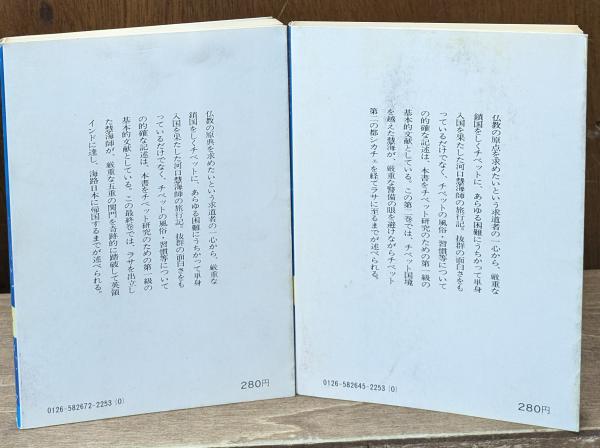 仏教の原典を求めたいという求道者の一心から、厳重な
鎖国をしくチベットに、あらゆる困難にうちかって単身
入国を果たした河口慧海師の旅行記。抜群の面白さをも
っているだけでなく、チベットの風俗・習慣等について
の的確な記述は、本書をチベット研究のための第一級の
基本的文献としている。この最終巻では、ラサを出立し
た慧海師が、厳重な五重の関門を奇跡的に踏破して英領
インドに達し、海路日本に帰国するまでが述べられる。
280円
0126-582672-2253 (0)
仏教の原点を求めたいという求道者の一心から、厳重な
鎖国をしくチベットに、あらゆる困難にうちかって単身
入国を果たした河口慧海師の旅行記。抜群の面白さをも
っているだけでなく、チベットの風俗・習慣等について
の的確な記述は、本書をチベット研究のための第一級の
基本的文献としている。この第二巻では、チベット国境
を越えた慧海が、厳重な警備の眼を避けながらチベット
第二の都シカチェを経てラサに至るまでが述べられる。
0126-582645-2253 (0)
280円